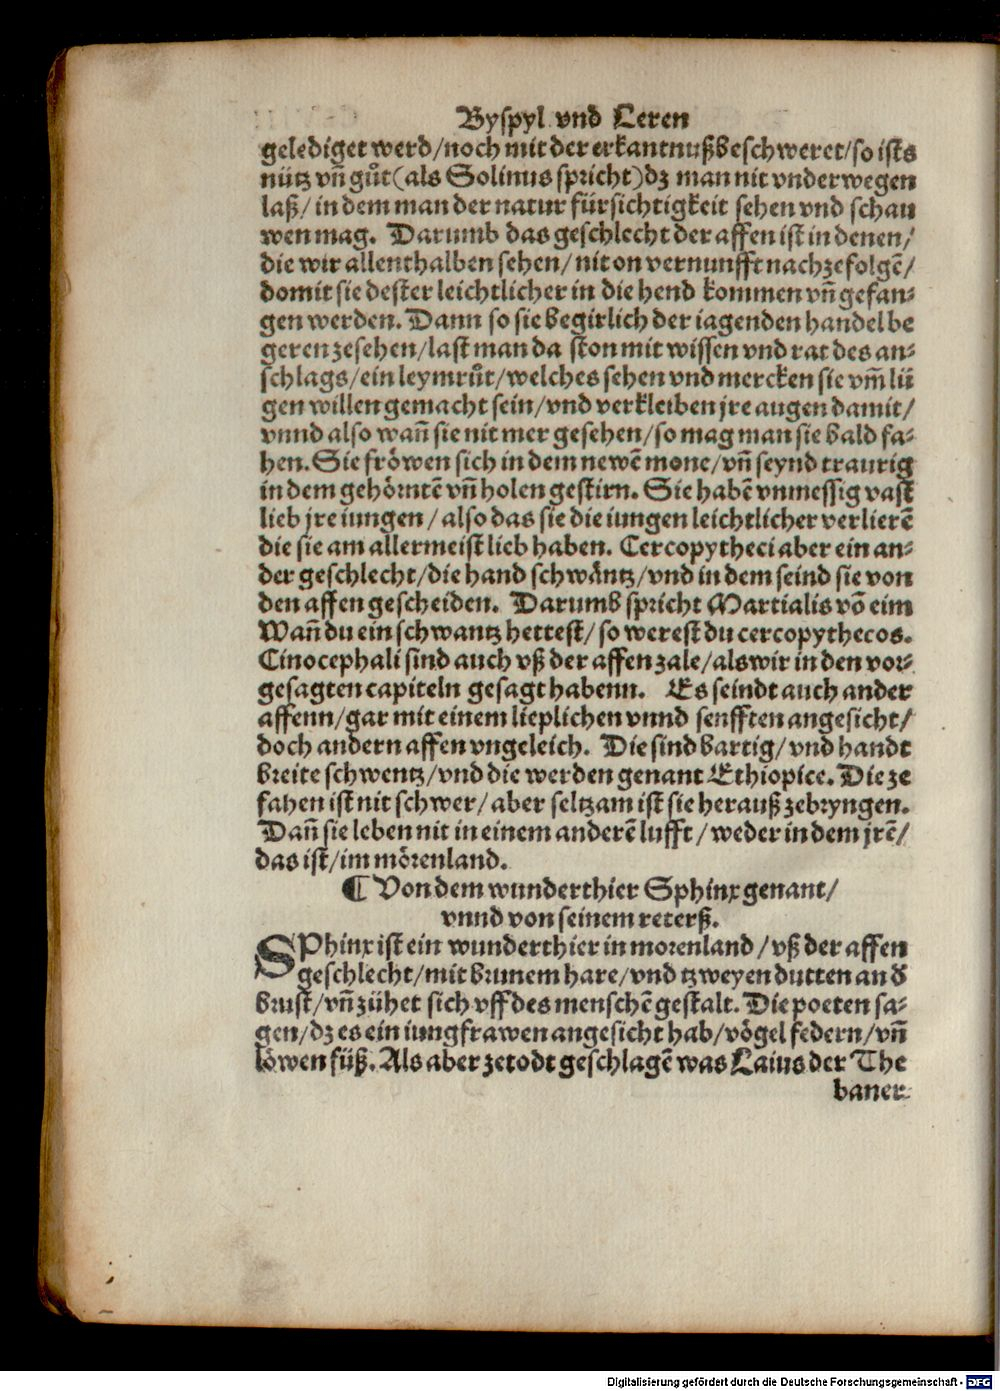 Byspyl vnd Leren
gelediget werd/noch mit der erkantnuß beschweret/so ists
nütz vn̄ gůt(als Solinus spricht)dz man nit vnderwegen
laß/in dem man der natur fürsichtigkeit sehen vnd schau
wen mag. Darumb das geschlecht der affen ist in denen/
die wir allenthalben sehen/nit on vernunfft nachzefolgē/
domit sie dester leichtlicher in die hend kommen vn̄ gefan⸗
gen werden. Dann so sie begirlich der iagenden handel be
geren zesehen/last man da ston mit wissen vnd rat des an⸗
schlags/ein leymrůt/welches sehen vnd mercken sie vm̄ lü
gen willen gemacht sein/vnd verkleiben jre augen damit/
vnnd also wan̄ sie nit mer gesehen/so mag man sie bald fa⸗
hen. Sie fröwen sich in dem newē mone/vn̄ seynd traurig
in dem gehörntē vn̄ holen gestirn. Sie habē vnmessig vast
lieb jre iungen/also das sie die iungen leichtlicher verlierē
die sie am allermeist lieb haben. Cercopytheci aber ein an⸗
der geschlecht/die hand schwäntz/vnd in dem seind sie von
den affen gescheiden. Darumb spricht Martialis vō eim
Wan̄ du ein schwantz hettest/so werest du cercopythecos.
Cinocephali sind auch vß der affen zale/als wir in den vor⸗
gesagten capiteln gesagt habenn. Es seindt auch ander
affenn/gar mit einem lieplichen vnnd senfften angesicht/
doch andern affen vngeleich. Die sind bartig/vnd handt
breite schwentz/vnd die werden genant Ethiopice. Die ze
fahen ist nit schwer/aber seltzam ist sie herauß zebryngen.
Dan̄ sie leben nit in einem anderē lufft/weder in dem jrē/
das ist/im mörenland.
¶ Von dem wunderthier Sphinx genant/
vnnd von seinem reterß.
SPhinx ist ein wunderthier in morenland/vß der affen
geschlecht/mit brunem hare/vnd tzweyen dutten an d̕
brust/vn̄ zühet sich vff des menschē gestalt. Die poeten sa⸗
gen/dz es ein iungfrawen angesicht hab/vögel federn/vn̄
löwen füß. Als aber zetodt geschlagē was Laius der The
baner⸗
Digitalisierung gefördert durch die Deutsche Forschungsgemeinschaft - DFG